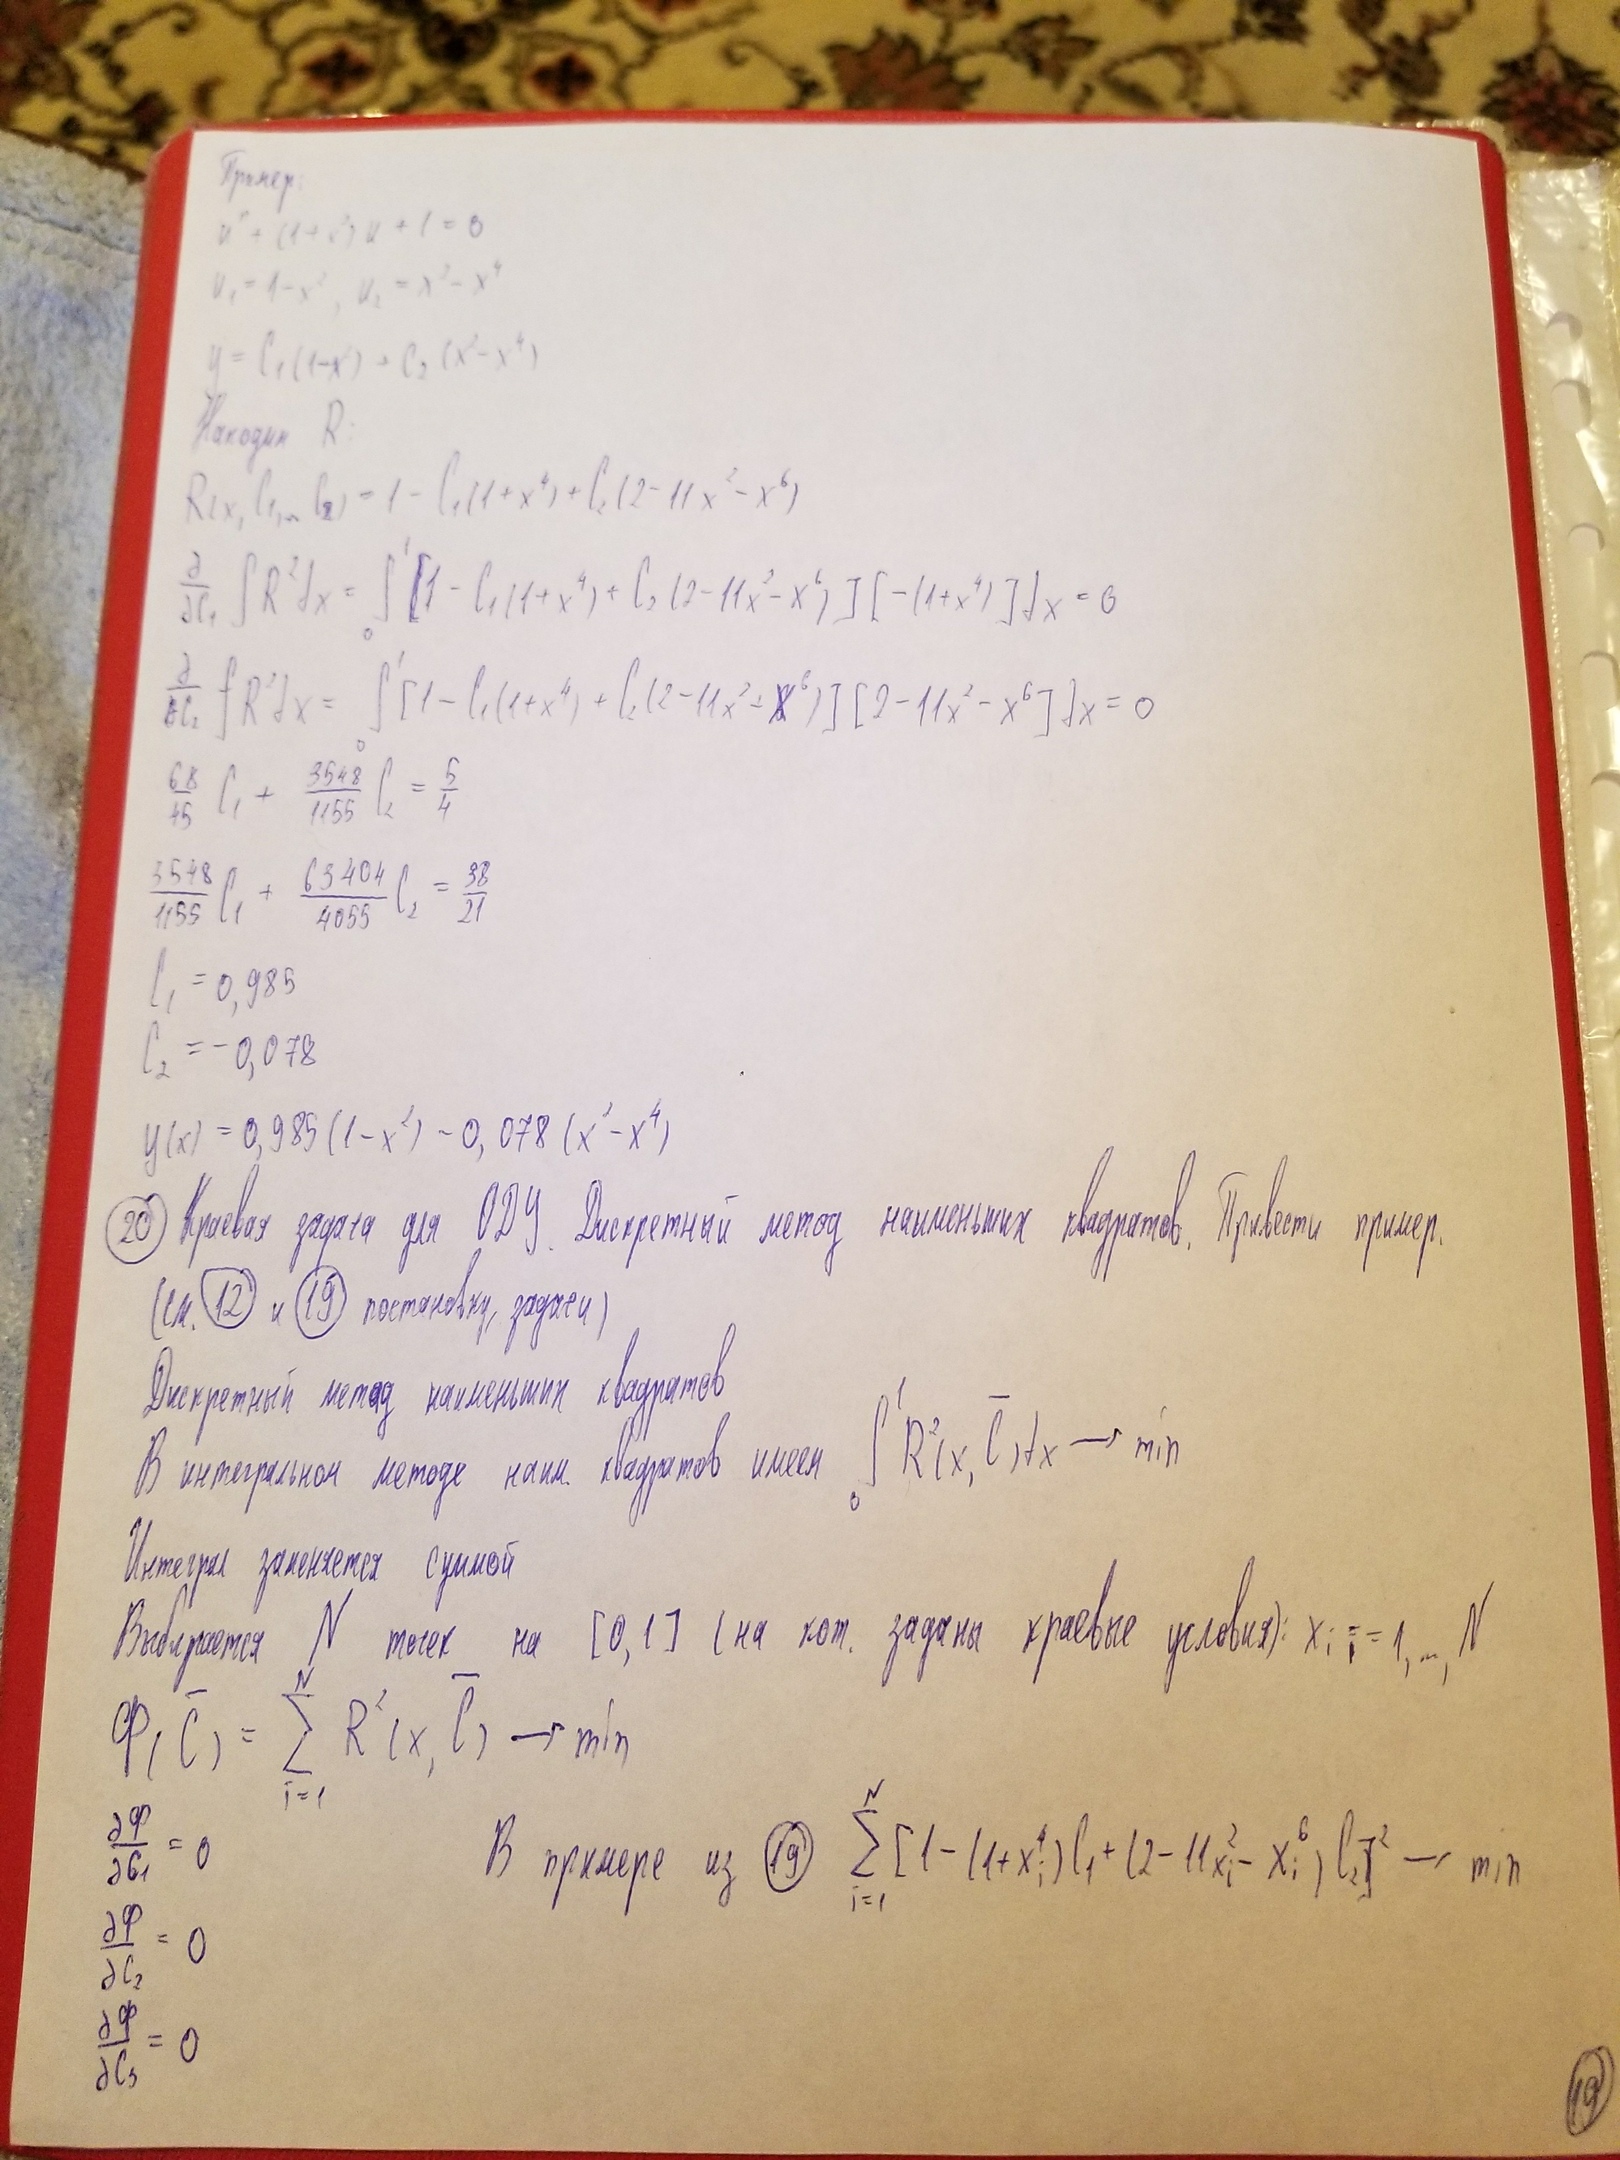 Пример:
u'' + (1+x²)u + 1 = 0
u₁ = 1-x², u₂ = x²-x⁴
y = C₁(1-x²) + C₂(x²-x⁴)
Находим R:
R(x, C₁,... C₂) = 1 - C₁(1+x⁴) + C₂(2-11x²-x⁶)
∂/∂C₁ ∫R²dx = ∫₀¹ [1 - C₁(1+x⁴) + C₂(2-11x²-x⁶)][-(1+x⁴)]dx = 0
∂/∂C₂ ∫R²dx = ∫₀¹ [1 - C₁(1+x⁴) + C₂(2-11x²-x⁶)][2-11x²-x⁶]dx = 0
68/45 C₁ + 3548/1155 C₂ = 5/4
3548/1155 C₁ + 63404/4055 C₂ = 38/21
C₁ = 0,985
C₂ = -0,078
y(x) = 0,985(1-x²) - 0,078(x²-x⁴)
20 Краевая задача для ОДУ. Дискретный метод наименьших квадратов. Привести пример.
(см. 12 и 19 постановку задачи)
Дискретный метод наименьших квадратов
В интегральном методе наим. квадратов имеем ∫₀¹ R²(x, C̄)dx → min
Интеграл заменяется суммой
Выбирается N точек на [0,1] (на кот. заданы краевые условия): xᵢ i = 1,...,N
Ф(C̄) = ∑ᵢ₌₁ᴺ R²(x, C̄) → min
∂Ф/∂C₁ = 0 В примере из 19 ∑ᵢ₌₁ᴺ [1-(1+xᵢ⁴)C₁+(2-11xᵢ²-xᵢ⁶)C₂]² → min
∂Ф/∂C₂ = 0
∂Ф/∂C₃ = 0
19